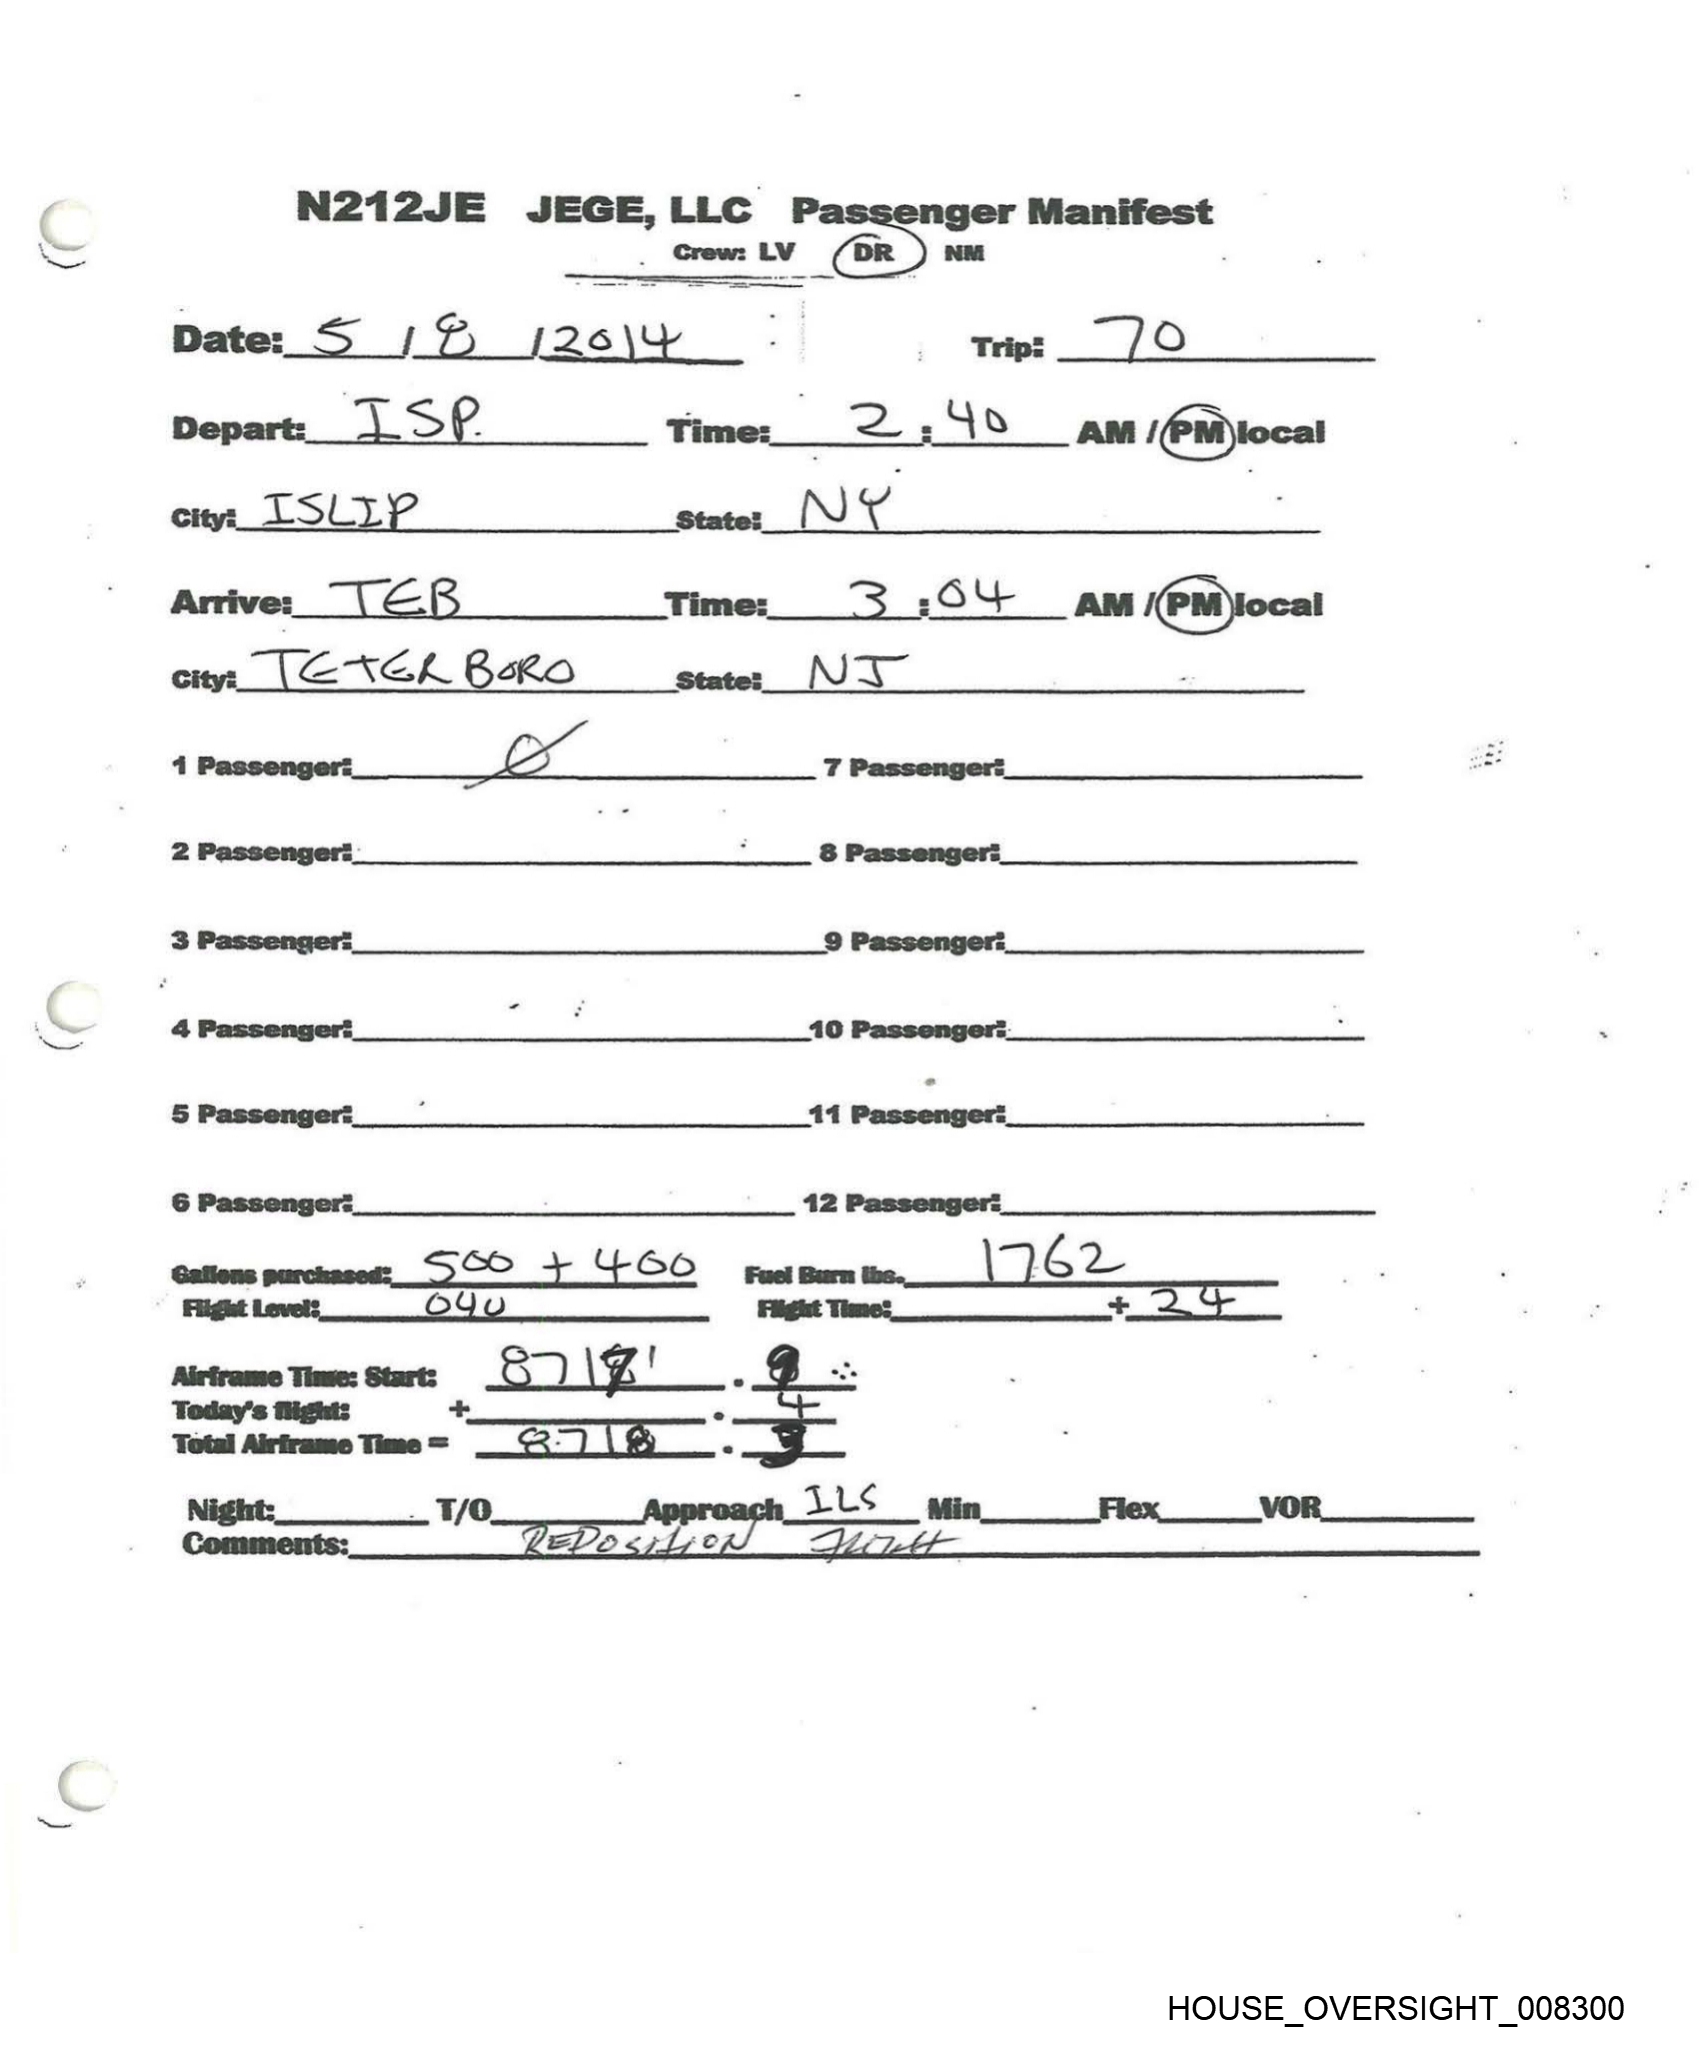 N212JE JEGE, LLC Passenger Manifest
Crew: LV DR NM
Date: 5 / 8 / 2014 Trip: 70
Depart: ISP. Time: 2 : 40 AM / PM local
City: ISLIP State: NY
Arrive: TEB Time: 3 : 04 AM / PM local
City: TETERBORO State: NJ
1 Passenger: Ø 7 Passenger:
2 Passenger: 8 Passenger:
3 Passenger: 9 Passenger:
4 Passenger: 10 Passenger:
5 Passenger: 11 Passenger:
6 Passenger: 12 Passenger:
Gallons purchased: 500 + 400 Fuel Burn lbs. 1762
Flight Level: 040 Flight Time: + 24
Airframe Time: Start: 8717 . 9
Today's flight: + . 4
Total Airframe Time = 8718 . 3
Night: T/O Approach ILS Min Flex VOR
Comments: REPOSITION FLIGHT
HOUSE_OVERSIGHT_008300